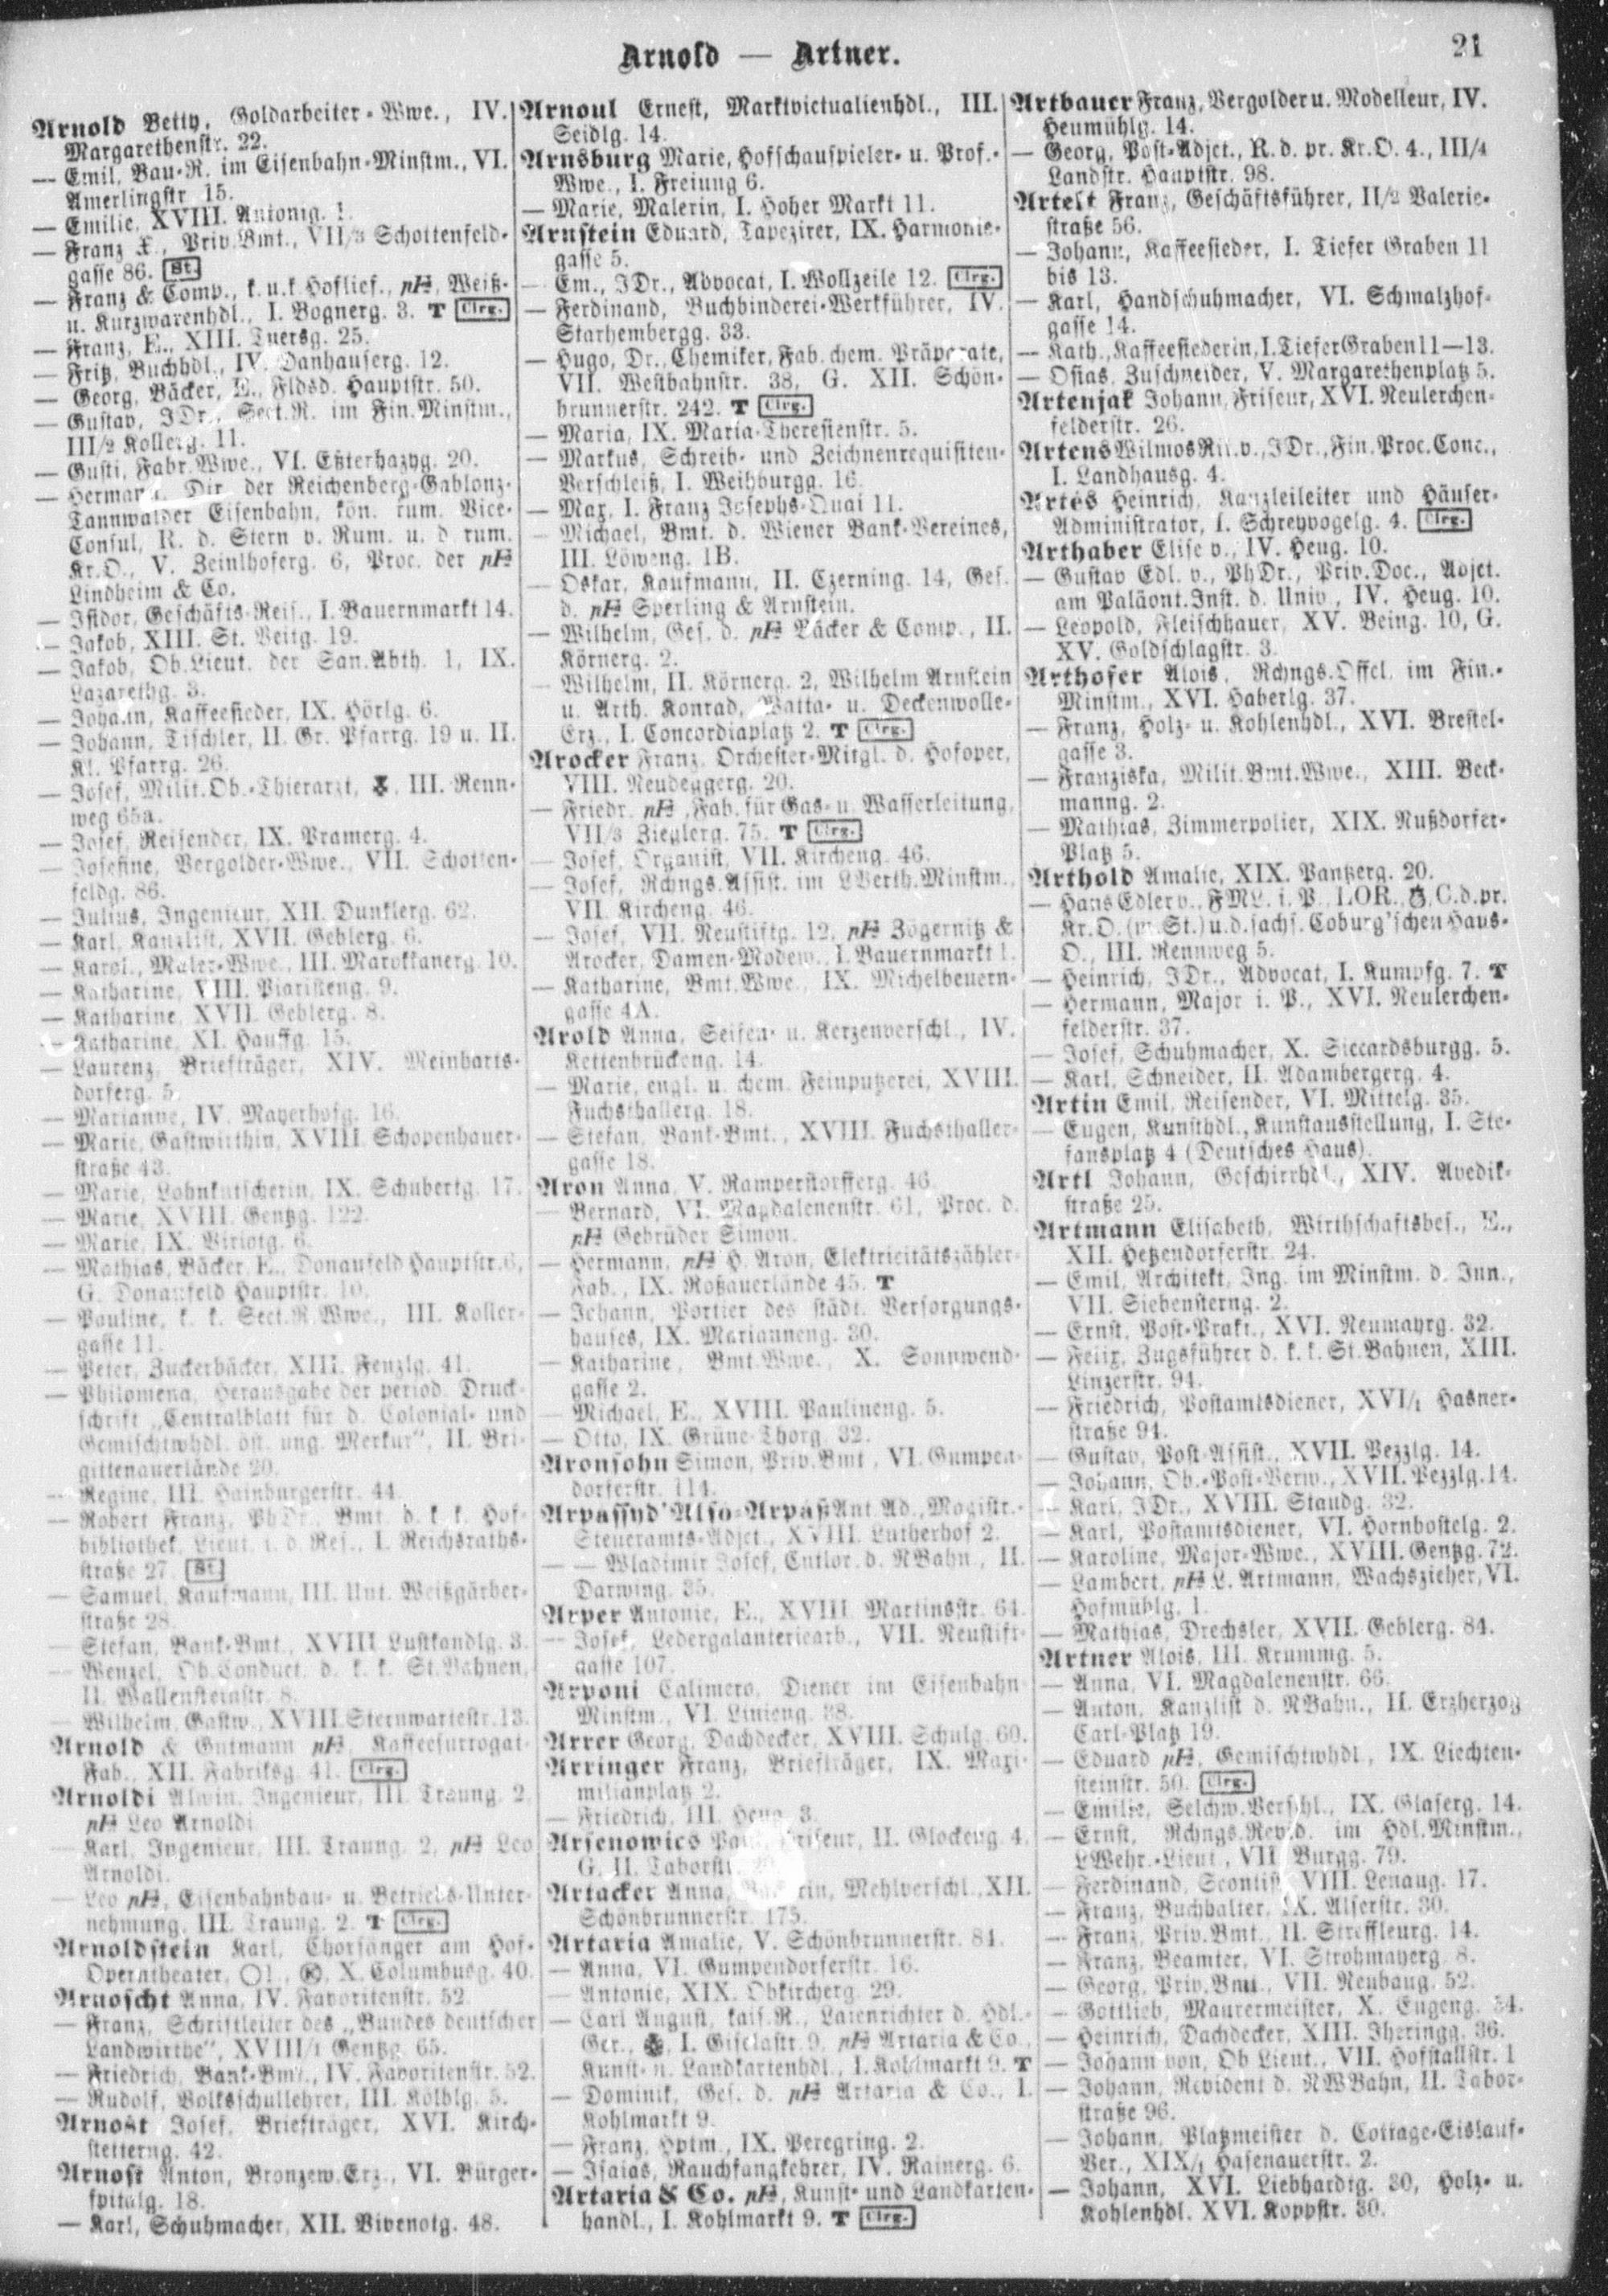 Arnold — Artner.
21
Arnold Betty, Goldarbeiter-Wwe., IV.
Margarethenstr. 22.
— Emil, Bau-R. im Eisenbahn-Minstm., VI.
Amerlingstr. 15.
— Emilie, XVIII. Antonig. 1.
— Franz X., Priv.Bmt., VII/3 Schottenfeld-
gasse 86. St.
— Franz & Comp., k. u. k. Hoflief., pH, Weiß-
u. Kurzwarenhdl., I. Bognerg. 3. T Clrg.
— Franz, E., XIII. Tuersg. 25.
— Fritz, Buchhdl., IV. Danhauserg. 12.
— Georg, Bäcker, E., Fldsd. Hauptstr. 50.
— Gustav, JDr., Sect.R. im Fin.Minstm.,
III/2 Kollerg. 11.
— Gusti, Fabr.Wwe., VI. Eßterhazyg. 20.
— Hermann, Dir. der Reichenberg-Gablonz-
Tannwalder Eisenbahn, kön. rum. Vice-
Consul, R. d. Stern v. Rum. u. d. rum.
Kr.O., V. Zeinlhoferg. 6, Proc. der pH
Lindheim & Co.
— Isidor, Geschäfts-Reis., I. Bauernmarkt 14.
— Jakob, XIII. St. Veitg. 19.
— Jakob, Ob.Lieut. der San.Abth. 1, IX.
Lazarethg. 3.
— Johann, Kaffeesieder, IX. Hörlg. 6.
— Johann, Tischler, II. Gr. Pfarrg. 19 u. II.
Kl. Pfarrg. 26.
— Josef, Milit.Ob.-Thierarzt, III. Renn-
weg 65a.
— Josef, Reisender, IX. Pramerg. 4.
— Josefine, Vergolder-Wwe., VII. Schotten-
feldg. 86.
— Julius, Ingenieur, XII. Dunklerg. 62.
— Karl, Kanzlist, XVII. Geblerg. 6.
— Karol., Maler-Wwe., III. Marokkanerg. 10.
— Katharine, VIII. Piaristeng. 9.
— Katharine, XVII. Geblerg. 8.
— Katharine, XI. Hauffg. 15.
— Laurenz, Briefträger, XIV. Meinharts-
dorferg. 5.
— Marianne, IV. Mayerhofg. 16.
— Marie, Gastwirthin, XVIII. Schopenhauer-
straße 43.
— Marie, Lohnkutscherin, IX. Schubertg. 17.
— Marie, XVIII. Gentzg. 122.
— Marie, IX. Viriotg. 6.
— Mathias, Bäcker, E., Donaufeld Hauptstr. 6,
G. Donaufeld Hauptstr. 10.
— Pauline, k. k. Sect.R.Wwe., III. Koller-
gasse 11.
— Peter, Zuckerbäcker, XIII. Fenzlg. 41.
— Philomena, Herausgabe der period. Druck-
schrift „Centralblatt für d. Colonial- und
Gemischtwhdl. öst. ung. Merkur", II. Bri-
gittenauerlände 20.
— Regine, III. Hainburgerstr. 44.
— Robert Franz, PhDr., Bmt. d. k. k. Hof-
bibliothek, Lieut. i. d. Res., I. Reichsraths-
straße 27. St.
— Samuel, Kaufmann, III. Unt. Weißgärber-
straße 28.
— Stefan, Bank-Bmt., XVIII. Lustkandlg. 3.
— Wenzel, Ob.Conduct. d. k. k. St.Bahnen,
II. Wallensteinstr. 8.
— Wilhelm, Gastw., XVIII. Sternwartestr. 13.
Arnold & Gutmann pH, Kaffeesurrogat-
Fab., XII. Fabriksg. 41. Clrg.
Arnoldi Alwin, Ingenieur, III. Traung. 2.
pH Leo Arnoldi.
— Karl, Ingenieur, III. Traung. 2, pH Leo
Arnoldi.
— Leo pH, Eisenbahnbau- u. Betriebs-Unter-
nehmung, III. Traung. 2. T Clrg.
Arnoldstein Karl, Chorsänger am Hof-
Operntheater, X. Columbusg. 40.
Arnoscht Anna, IV. Favoritenstr. 52.
— Franz, Schriftleiter des „Bundes deutscher
Landwirthe", XVIII/1 Gentzg. 65.
— Friedrich, Bank-Bmt., IV. Favoritenstr. 52.
— Rudolf, Volksschullehrer, III. Kölblg. 5.
Arnošt Josef, Briefträger, XVI. Kirch-
stetterng. 42.
Arnost Anton, Bronzew.Erz., VI. Bürger-
spitalg. 18.
— Karl, Schuhmacher, XII. Vivenotg. 48.
Arnoul Ernest, Marktvictualienhdl., III.
Seidlg. 14.
Arnsburg Marie, Hofschauspieler- u. Prof.-
Wwe., I. Freiung 6.
— Marie, Malerin, I. Hoher Markt 11.
Arnstein Eduard, Tapezirer, IX. Harmonie-
gasse 5.
— Em., JDr., Advocat, I. Wollzeile 12. Clrg.
— Ferdinand, Buchbinderei-Werkführer, IV.
Starhembergg. 33.
— Hugo, Dr., Chemiker, Fab. chem. Präparate,
VII. Westbahnstr. 38, G. XII. Schön-
brunnerstr. 242. T Clrg.
— Maria, IX. Maria-Theresienstr. 5.
— Markus, Schreib- und Zeichnenrequisiten-
Verschleiß, I. Weihburgg. 16.
— Max, I. Franz Josephs-Quai 11.
— Michael, Bmt. d. Wiener Bank-Vereines,
III. Löweng. 1B.
— Oskar, Kaufmann, II. Czerning. 14, Ges.
d. pH Sperling & Arnstein.
— Wilhelm, Ges. d. pH Bäcker & Comp., II.
Körnerg. 2.
— Wilhelm, II. Körnerg. 2, Wilhelm Arnstein
u. Arth. Konrad, Watta- u. Deckenwolle-
Erz., I. Concordiaplatz 2. T Clrg.
Arocker Franz, Orchester-Mitgl. d. Hofoper,
VIII. Neudeggerg. 20.
— Friedr. pH, Fab. für Gas- u. Wasserleitung,
VII/3 Zieglerg. 75. T Clrg.
— Josef, Organist, VII. Kircheng. 46.
— Josef, Rchngs.Assist. im LVerth.Minstm.,
VII. Kircheng. 46.
— Josef, VII. Neustiftg. 12, pH Zögernitz &
Arocker, Damen-Modew., I. Bauernmarkt 1.
— Katharine, Bmt.Wwe., IX. Michelbeuern-
gasse 4A.
Arold Anna, Seifen- u. Kerzenverschl., IV.
Kettenbrückeng. 14.
— Marie, engl. u. chem. Feinputzerei, XVIII.
Fuchsthallerg. 18.
— Stefan, Bank-Bmt., XVIII. Fuchsthaller-
gasse 18.
Aron Anna, V. Ramperstorfferg. 46.
— Bernard, VI. Magdalenenstr. 61, Proc. d.
pH Gebrüder Simon.
— Hermann, pH H. Aron, Elektricitätszähler-
Fab., IX. Roßauerlände 45. T
— Johann, Portier des städt. Versorgungs-
hauses, IX. Marianneng. 30.
— Katharine, Bmt.Wwe., X. Sonnwend-
gasse 2.
— Michael, E., XVIII. Paulineng. 5.
— Otto, IX. Grüne-Thorg. 32.
Aronsohn Simon, Priv.Bmt., VI. Gumpen-
dorferstr. 114.
Arpassyd'Also-Arpaß Ant. Ad., Magistr.-
Steueramts-Adjct., XVIII. Lutherhof 2.
— — Wladimir Josef, Cutlor. d. NBahn, II.
Darwing. 35.
Arper Antonie, E., XVIII. Martinsstr. 64.
— Josef, Ledergalanteriearb., VII. Neustift-
gasse 107.
Arponi Calimero, Diener im Eisenbahn-
Minstm., VI. Linieng. 38.
Arrer Georg, Dachdecker, XVIII. Schulg. 60.
Arringer Franz, Briefträger, IX. Maxi-
milianplatz 2.
— Friedrich, III. Heug. 3.
Arsenowics Friseur, II. Glockeng. 4.
G. II. Taborstr.
Artacker Anna, Mehlverschl., XII.
Schönbrunnerstr. 175.
Artaria Amalie, V. Schönbrunnerstr. 81.
— Anna, VI. Gumpendorferstr. 16.
— Antonie, XIX. Obkircherg. 29.
— Carl August, kais.R., Laienrichter d. Hdl.-
Ger., I. Giselastr. 9, pH Artaria & Co.,
Kunst- u. Landkartenhdl., I. Kohlmarkt 9. T
— Dominik, Ges. d. pH Artaria & Co., I.
Kohlmarkt 9.
— Franz, Hptm., IX. Peregring. 2.
— Isaias, Rauchfangkehrer, IV. Rainerg. 6.
Artaria & Co. pH, Kunst- und Landkarten-
handl., I. Kohlmarkt 9. T Clrg.
Artbauer Franz, Vergolder u. Modelleur, IV.
Heumühlg. 14.
— Georg, Post-Adjct., R. d. pr. Kr.O. 4., III/4
Landstr. Hauptstr. 98.
Artelt Franz, Geschäftsführer, II/2 Valerie-
straße 56.
— Johann, Kaffeesieder, I. Tiefer Graben 11
bis 13.
— Karl, Handschuhmacher, VI. Schmalzhof-
gasse 14.
— Kath., Kaffeesiederin, I. Tiefer Graben 11—13.
— Osias, Zuschneider, V. Margarethenplatz 5.
Artenjak Johann, Friseur, XVI. Neulerchen-
felderstr. 26.
Artens Wilmos Rit. v., JDr., Fin.Proc.Conc.,
I. Landhausg. 4.
Artès Heinrich, Kanzleileiter und Häuser-
Administrator, I. Schreyvogelg. 4. Clrg.
Arthaber Elise v., IV. Heug. 10.
— Gustav Edl. v., PhDr., Priv.Doc., Adjct.
am Paläont.Inst. d. Univ., IV. Heug. 10.
— Leopold, Fleischhauer, XV. Being. 10, G.
XV. Goldschlagstr. 3.
Arthofer Alois, Rchngs.Offcl. im Fin.-
Minstm., XVI. Haberlg. 37.
— Franz, Holz- u. Kohlenhdl., XVI. Brestel-
gasse 3.
— Franziska, Milit.Bmt.Wwe., XIII. Beck-
manng. 2.
— Mathias, Zimmerpolier, XIX. Nußdorfer-
Platz 5.
Arthold Amalie, XIX. Pantzerg. 20.
— Hans Edler v., FML. i. P., LOR., C. d. pr.
Kr.O. (m. St.) u. d. sachs. Coburg'schen Haus-
O., III. Rennweg 5.
— Heinrich, JDr., Advocat, I. Kumpfg. 7. T
— Hermann, Major i. P., XVI. Neulerchen-
felderstr. 37.
— Josef, Schuhmacher, X. Siccardsburgg. 5.
— Karl, Schneider, II. Adambergerg. 4.
Artin Emil, Reisender, VI. Mittelg. 35.
— Eugen, Kunsthdl., Kunstausstellung, I. Ste-
fansplatz 4 (Deutsches Haus).
Artl Johann, Geschirrhdl., XIV. Avedik-
straße 25.
Artmann Elisabeth, Wirthschaftsbes., E.,
XII. Hetzendorferstr. 24.
— Emil, Architekt, Ing. im Minstm. d. Inn.,
VII. Siebensterng. 2.
— Ernst, Post-Prakt., XVI. Neumayrg. 32.
— Felix, Zugsführer d. k. k. St.Bahnen, XIII.
Linzerstr. 94.
— Friedrich, Postamtsdiener, XVI/1 Hasner-
straße 94.
— Gustav, Post-Assist., XVII. Pezzlg. 14.
— Johann, Ob.-Post-Verw., XVII. Pezzlg. 14.
— Karl, JDr., XVIII. Staudg. 32.
— Karl, Postamtsdiener, VI. Hornbostelg. 2.
— Karoline, Major-Wwe., XVIII. Gentzg. 72.
— Lambert, pH L. Artmann, Wachszieher, VI.
Hofmühlg. 1.
— Mathias, Drechsler, XVII. Geblerg. 84.
Artner Alois, III. Krummg. 5.
— Anna, VI. Magdalenenstr. 66.
— Anton, Kanzlist d. NBahn., II. Erzherzog
Carl-Platz 19.
— Eduard pH, Gemischtwhdl., IX. Liechten-
steinstr. 50. Clrg.
— Emilie, Selchw.Verschl., IX. Glaserg. 14.
— Ernst, Rchngs.Revid. im Hdl.Minstm.,
LWehr.-Lieut., VII. Burgg. 79.
— Ferdinand, Scontist, VIII. Lenaug. 17.
— Franz, Buchhalter, IX. Alserstr. 30.
— Franz, Priv.Bmt., II. Streffleurg. 14.
— Franz, Beamter, VI. Strohmayerg. 8.
— Georg, Priv.Bmt., VII. Neubaug. 52.
— Gottlieb, Maurermeister, X. Eugeng. 54.
— Heinrich, Dachdecker, XIII. Iheringg. 36.
— Johann von, Ob.Lieut., VII. Hofstallstr. 1
— Johann, Revident d. NWBahn, II. Tabor-
straße 96.
— Johann, Platzmeister d. Cottage-Eislauf-
Ver., XIX/1 Hasenauerstr. 2.
— Johann, XVI. Liebhardtg. 30, Holz- u.
Kohlenhdl. XVI. Koppstr. 30.